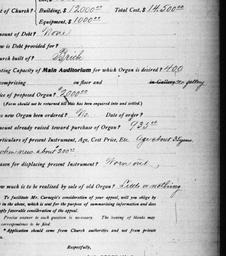 of Church? Building, $12000.00 Total Cost, $14,500.00
Equipment, $1000
ount of Debt? None
is Debt provided for?
urch built of? Brick
ating Capacity of Main Auditorium for which Organ is desired? 400
comprising in floor and in Gallery No gallery
ice of proposed Organ? $2000.00
(Form should not be returned till this has been enquired into and settled.)
s new Organ been Ordered? No. Date of order?
ount already raised toward purchase of Organ? $935.00
rticulars of present Instrument, Age, Cost Price, Etc. Age about
when new about $200.00
ason for displacing present Instrument? Worn out.
ow much is to be realised by sale of old Organ? Little or nothing
To facilitate Mr. Carnegie's consideration of your appeal, will you oblige by
t in the above, which is essential for the purpose of summarising information and does
ply favorable consideration of the appeal.
Precise answer to each question is necessary. The leaving of blanks may
correspondence to be filed.
* Application should come from Church authorities and not from private
Respectfully,